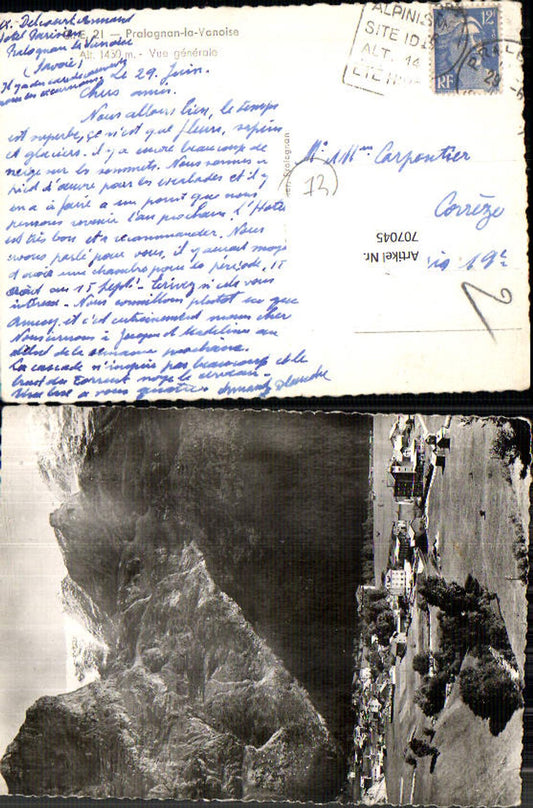 Ex. Delcourt Armand
Hotel Parisien
Pralognan la Vanoise
(Savoie)
21 — Pralognan-la-Vanoise
Alt. 1430 m. - Vue générale
le 29 Juin.
Chers amis.
Nous allons bien, le temps
est superbe, ce n'est que fleurs, sapins
et glaciers. il y a encore beaucoup de
neige sur les sommets. Nous sommes à
pied d'œuvre pour les escalades et il y
en a à faire a un point que nous
pensons revenir l'an prochain. L'Hotel
est très bon et à recommander. Nous
avons parlé pour vous, il y aurait moyen
d'avoir une chambre pour la période, 15
Août au 15 Septb. Ecrivez si cela vous
intéresse. Nous conseillons plutôt ici que
Annecy et c'est certainement moins cher
Nous serons à Jacques et Madeleine au
début de la semaine prochaine.
La cascade n'inspire pas beaucoup et le
bruit du torrent
a vous quatre Armand Blanche
Pralognan
ALPINISME
SITE IDÉ
ALT. 14
ÉTÉ
12F
RF
PRAL
29 -6
Mr & Mme Carpentier
73
Corrèze
Paris 19e
Artikel Nr.
707045
2